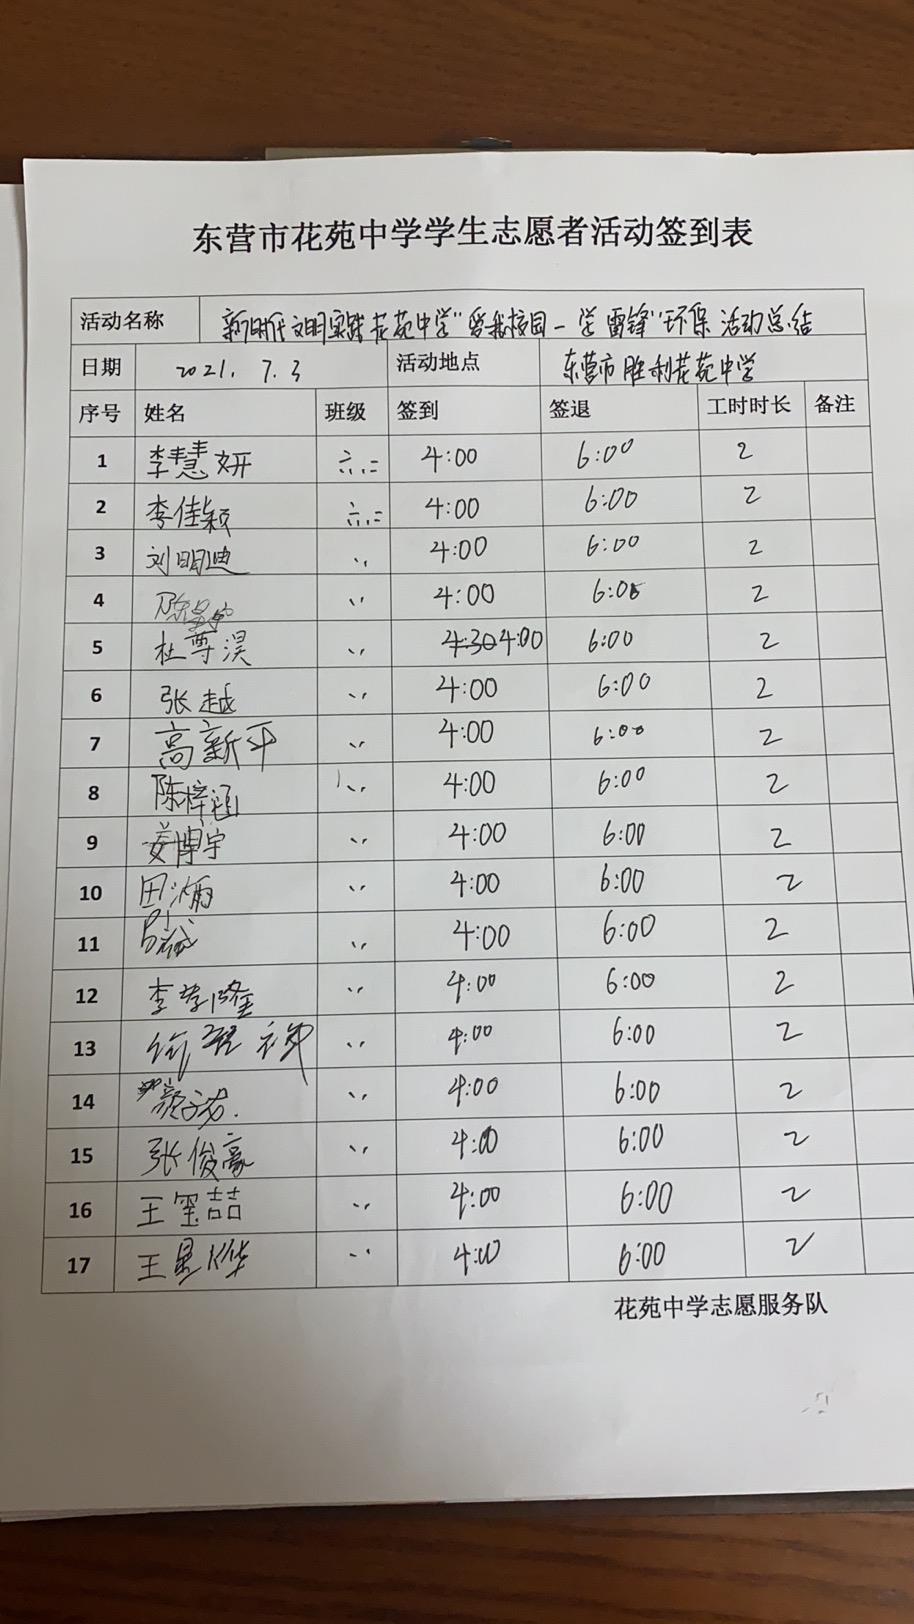 东营市花苑中学学生志愿者活动签到表
活动名称 新时代文明实践花苑中学“爱我校园一学雷锋”环保活动总结
日期 2021.7.3 活动地点 东营市胜利花苑中学
序号 姓名 班级 签到 签退 工时时长 备注
1 李慧妍 六.二 4:00 6:00 2
2 李佳颖 六.二 4:00 6:00 2
3 刘明迪 〃 4:00 6:00 2
4 〃 4:00 6:00 2
5 杜尊淏 〃 4:30 4:00 6:00 2
6 张越 〃 4:00 6:00 2
7 高新平 〃 4:00 6:00 2
8 陈梓涵 〃 4:00 6:00 2
9 姜博宇 〃 4:00 6:00 2
10 田 〃 4:00 6:00 2
11 〃 4:00 6:00 2
12 李 隆 〃 4:00 6:00 2
13 〃 4:00 6:00 2
14 颜 〃 4:00 6:00 2
15 张俊豪 〃 4:00 6:00 2
16 王玺喆 〃 4:00 6:00 2
17 王星烨 〃 4:00 6:00 2
花苑中学志愿服务队